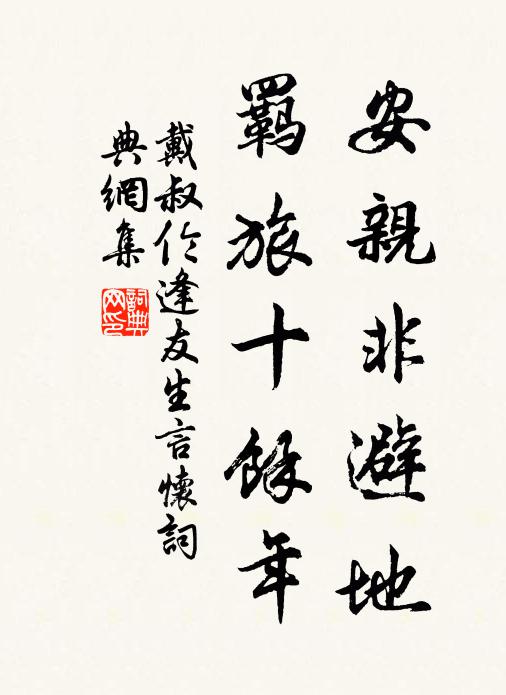 安親非避地
羇旅十餘年
戴叔伦逢友生言懷詞
典網集
詞典网印